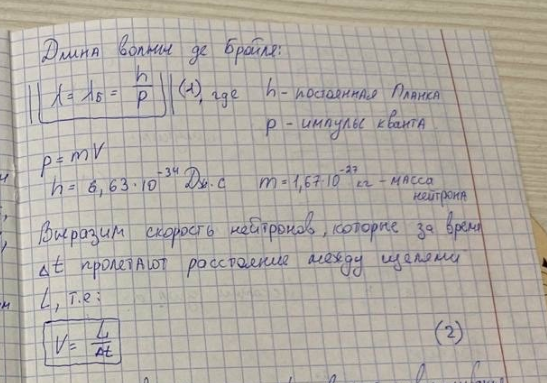 Длина волны де Бройля:
λ = λБ = h/p (1), где h - постоянная Планка
p - импульс кванта
p = mV
h = 6,63·10^-34 Дж·с m = 1,67·10^-27 кг - масса
нейтрона
Выразим скорость нейтронов, которые за время
Δt пролетают расстояние между щелями
L, т.е:
V = L/Δt (2)